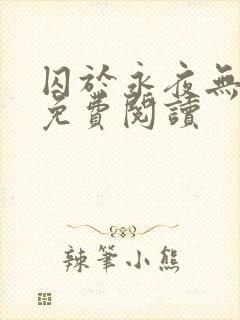 囚於永夜無
免費閱讀
辣筆小熊